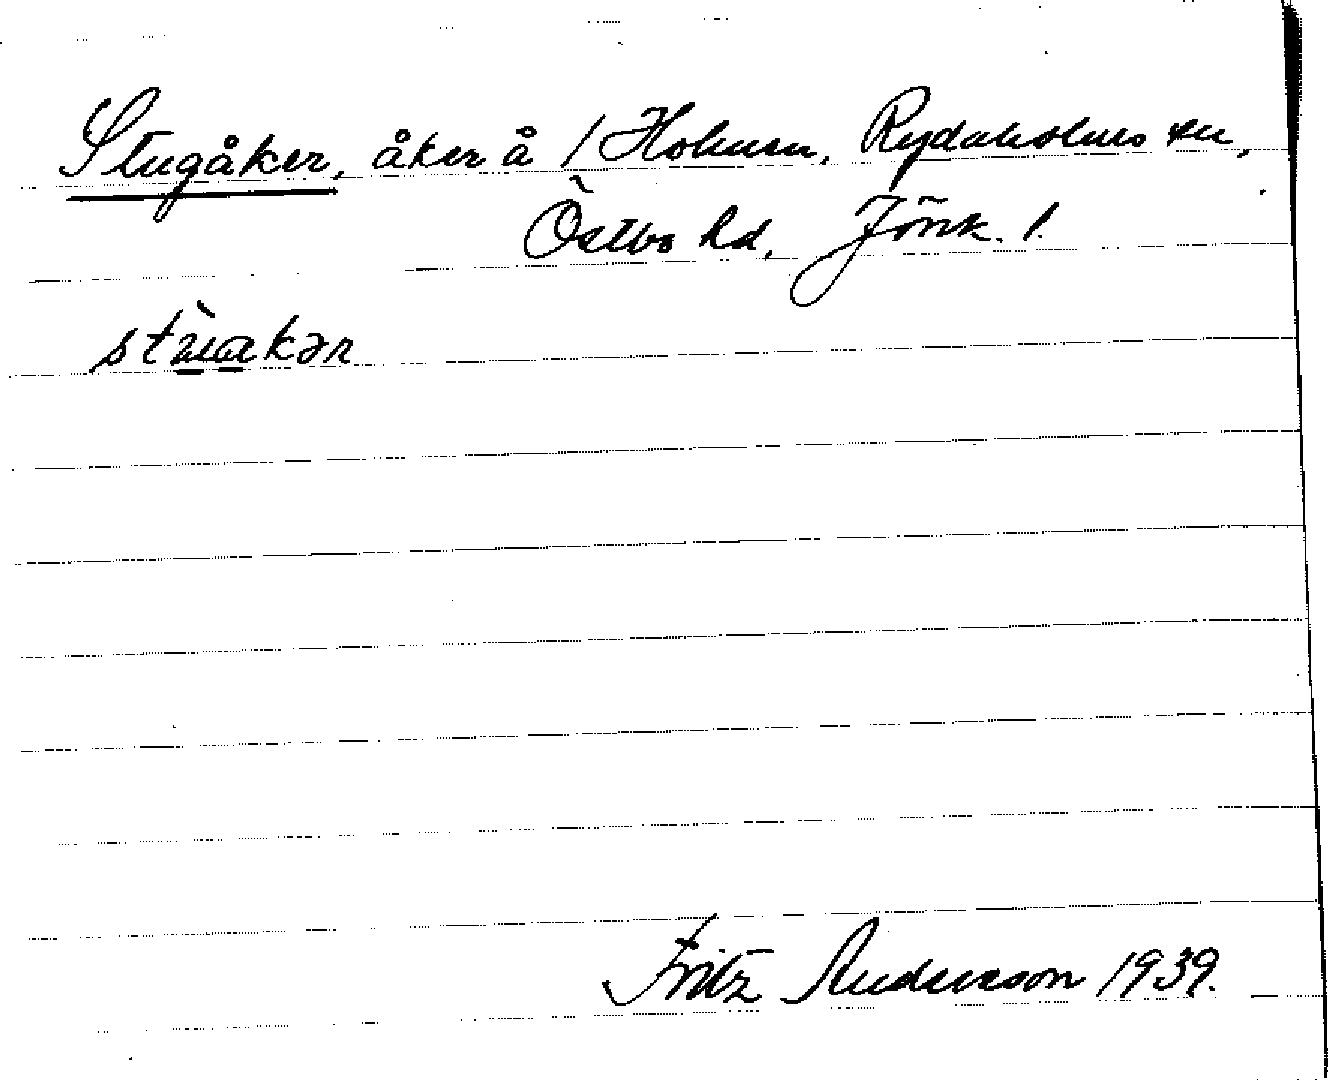 Stugåker, åker å / Holmen, Rydaholms sn,
Östbo hd, Jönk. l.
Fritz Andersson 1939.